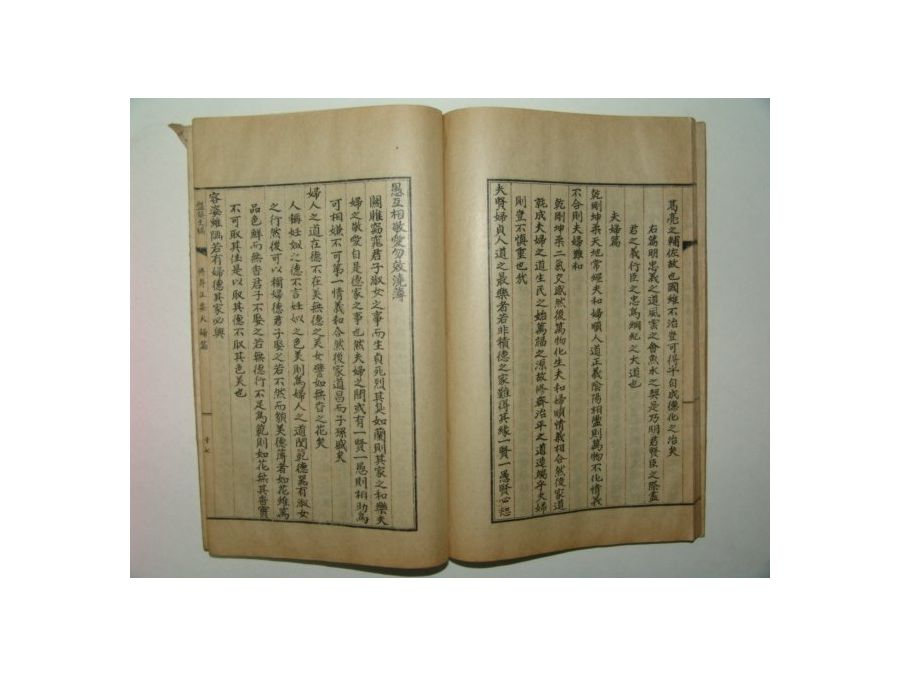 葛亮之輔佐故也國雖不治豈可得乎自成德化之治矣
右篇明忠義之道風雲之會魚水之契是乃明君賢臣之際盡
君之義行臣之忠為綱紀之大道也
夫婦篇
乾剛坤柔天地常經夫和婦順人道正義陰陽相盪則萬物不化情義
不合則夫婦難和
乾剛坤柔二氣交感然後萬物化生夫和婦順情義相合然後家道
乾成夫婦之道生民之始萬福之源故修齊治平之道造端乎夫婦
則豈不慎重也哉
夫賢婦貞人道之最樂者若非積德之家難得其緣一賢一愚賢必恕
愚互相敬愛勿效澆薄
關雎窈窕君子淑女之事而生貞死烈其臭如蘭則其家之和樂夫
婦之敬愛自是德家之事也然夫婦之間或有一賢一愚則相助為
可相嫌不可第一情義和合然後家道昌而子孫盛矣
婦人之道在德不在美無德之美女譬如無香之花矣
人稱妊姒之德不言妊姒之色美則為婦人之道閨範德為有淑女
之行然後可以稱婦德君子娶之若不然而顏美德薄者如花雖萬
品色鮮而無香君子不娶之若無德行不足為範則如花無其香實
不可取其佳是以取其德不取其色美也
容姿雖陋若有婦德其家必興
夫婦篇
十七